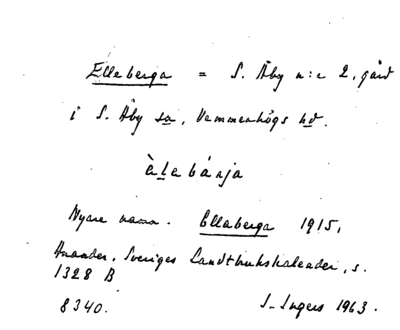 Elleberga = S. Åby n:r 2, gård
i S. Åby sn, Vemmenhögs hd.
ὲlebárja
Nyare namn. Ellaberga 1915,
Anander, Sveriges Landtbrukskalender, s.
1328 B
8340. S. Ingers 1963.